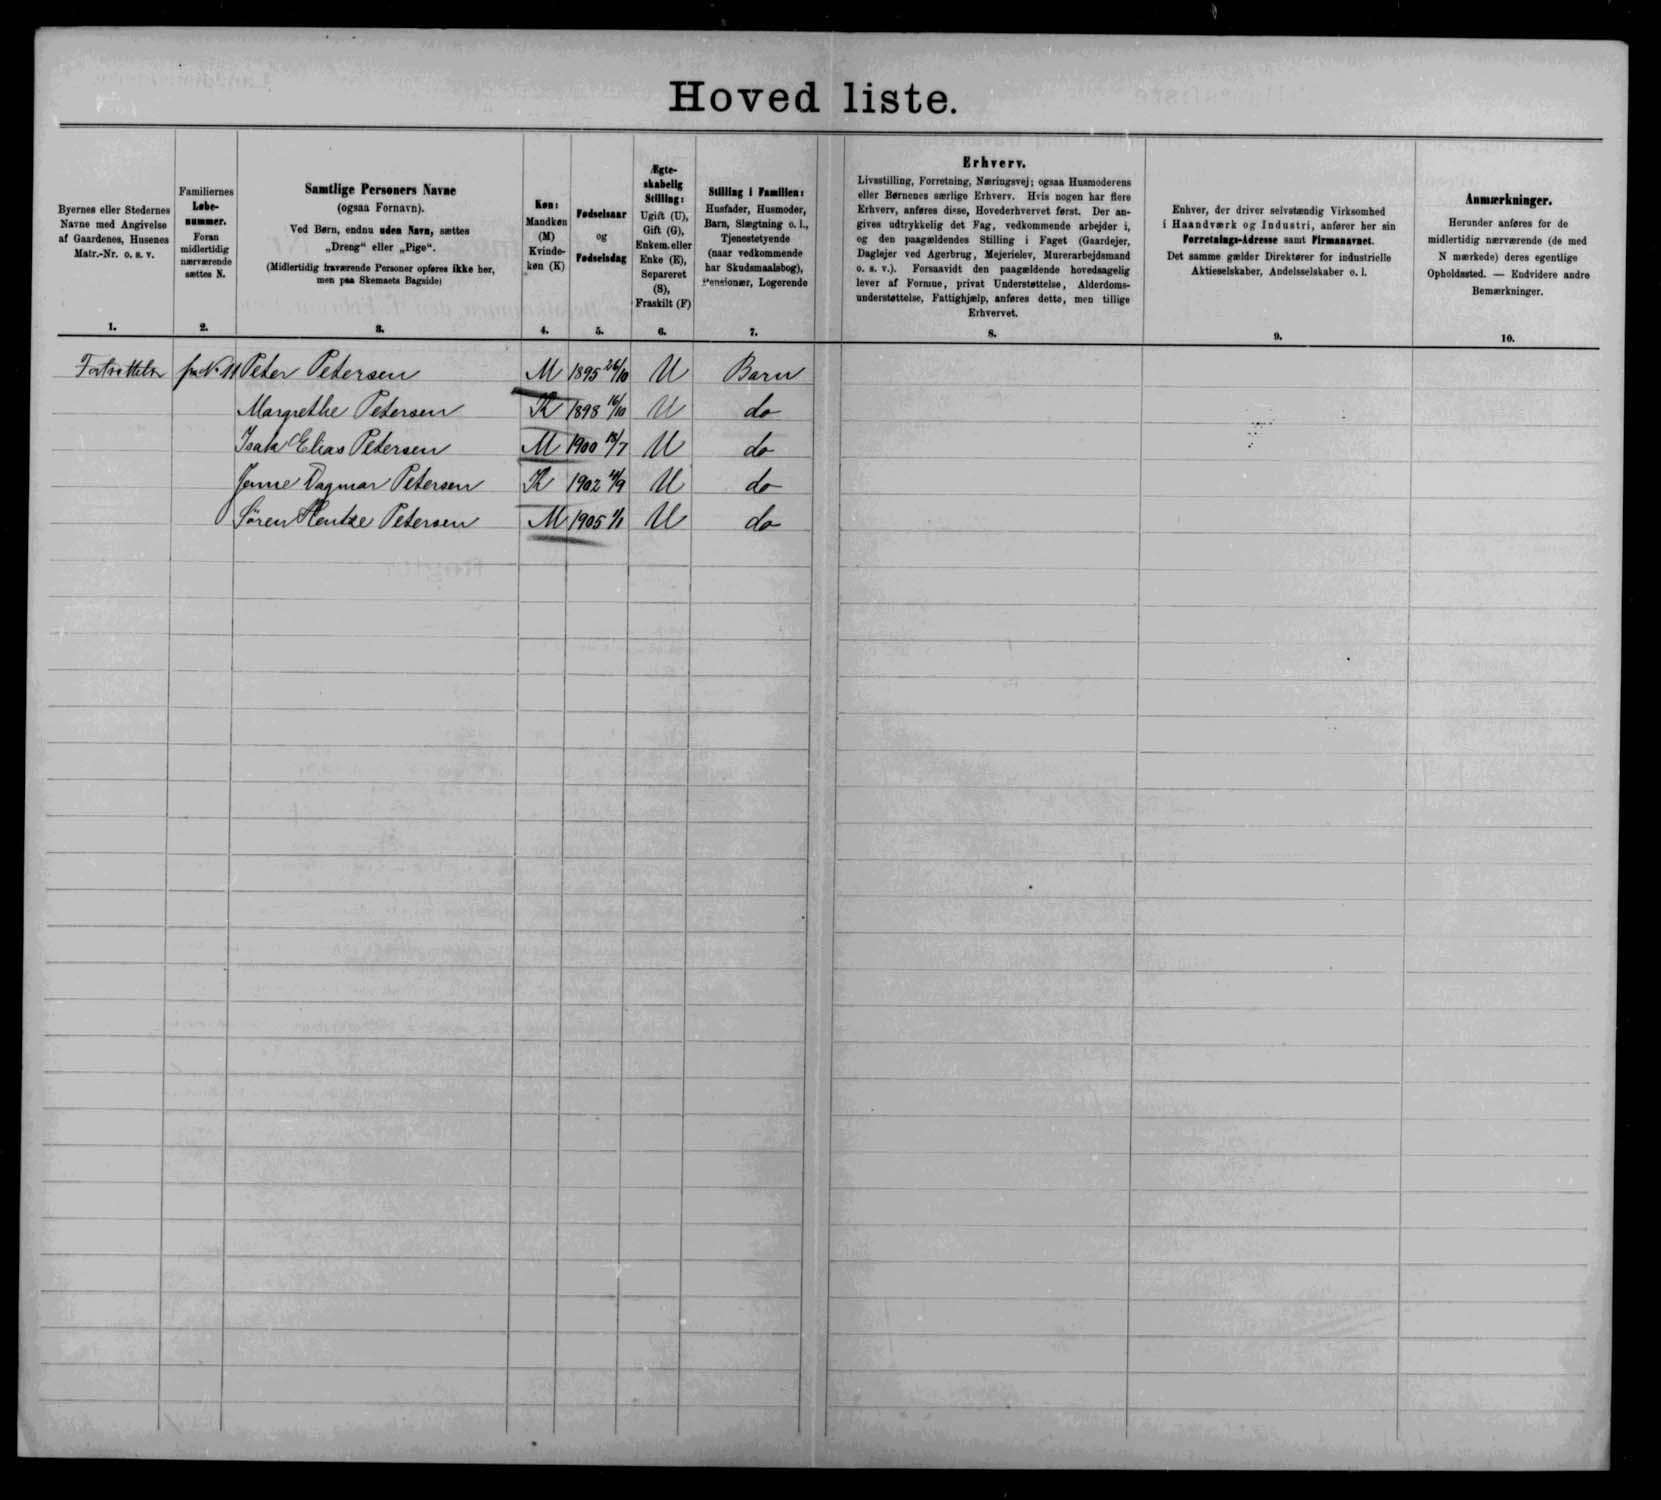 Hoved liste.
Byernes eller Stedernes
Navne med Angivelse
af Gaardenes, Husenes
Matr.-Nr. o. s. v.
1.
Familiernes
Løbe-
nummer.
Foran
midlertidig
nærværende
sættes N.
2.
Samtlige Personers Navne
(ogsaa Fornavn).
Ved Børn, endnu uden Navn, sættes
„Dreng“ eller „Pige“.
(Midlertidig fraværende Personer opføres ikke her,
men paa Skemaets Bagside)
3.
Køn:
Mandkøn
(M)
Kvinde-
køn (K)
4.
Fødselsaar
og
Fødselsdag
5.
Ægte-
skabelig
Stilling:
Ugift (U),
Gift (G),
Enkem. eller
Enke (E),
Separeret
(S),
Fraskilt (F)
6.
Stilling i Familien:
Husfader, Husmoder,
Barn, Slægtning o. l.,
Tjenestetyende
(naar vedkommende
har Skudsmaalsbog),
Pensionær, Logerende
7.
Erhverv.
Livsstilling, Forretning, Næringsvej; ogsaa Husmoderens
eller Børnenes særlige Erhverv. Hvis nogen har flere
Erhverv, anføres disse, Hovederhvervet først. Der an-
gives udtrykkelig det Fag, vedkommende arbejder i,
og den paagældendes Stilling i Faget (Gaardejer,
Daglejer ved Agerbrug, Mejerielev, Murerarbejdsmand
o. s. v.). Forsaavidt den paagældende hovedsagelig
lever af Formue, privat Understøttelse, Alderdoms-
understøttelse, Fattighjælp, anføres dette, men tillige
Erhvervet.
8.
Enhver, der driver selvstændig Virksomhed
i Haandværk og Industri, anfører her sin
Forretnings-Adresse samt Firmanavnet.
Det samme gælder Direktører for industrielle
Aktieselskaber, Andelsselskaber o. l.
9.
Anmærkninger.
Herunder anføres for de
midlertidig nærværende (de med
N mærkede) deres egentlige
Opholdssted. — Endvidere andre
Bemærkninger.
10.
Fortsættelse fra No 11 Peter Petersen M 1895 26/10 U Barn
Margrethe Petersen K 1898 16/10 U do
Isak Elias Petersen M 1900 18/7 U do
Jenne Dagmar Petersen K 1902 /9 U do
Søren Hentze Petersen M 1905 1/1 U do